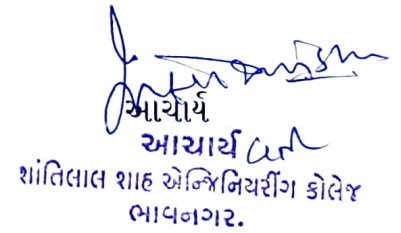 આચાર્ય
આચાર્ય
શાંતિલાલ શાહ એન્જિનિયરીંગ કોલેજ
ભાવનગર.